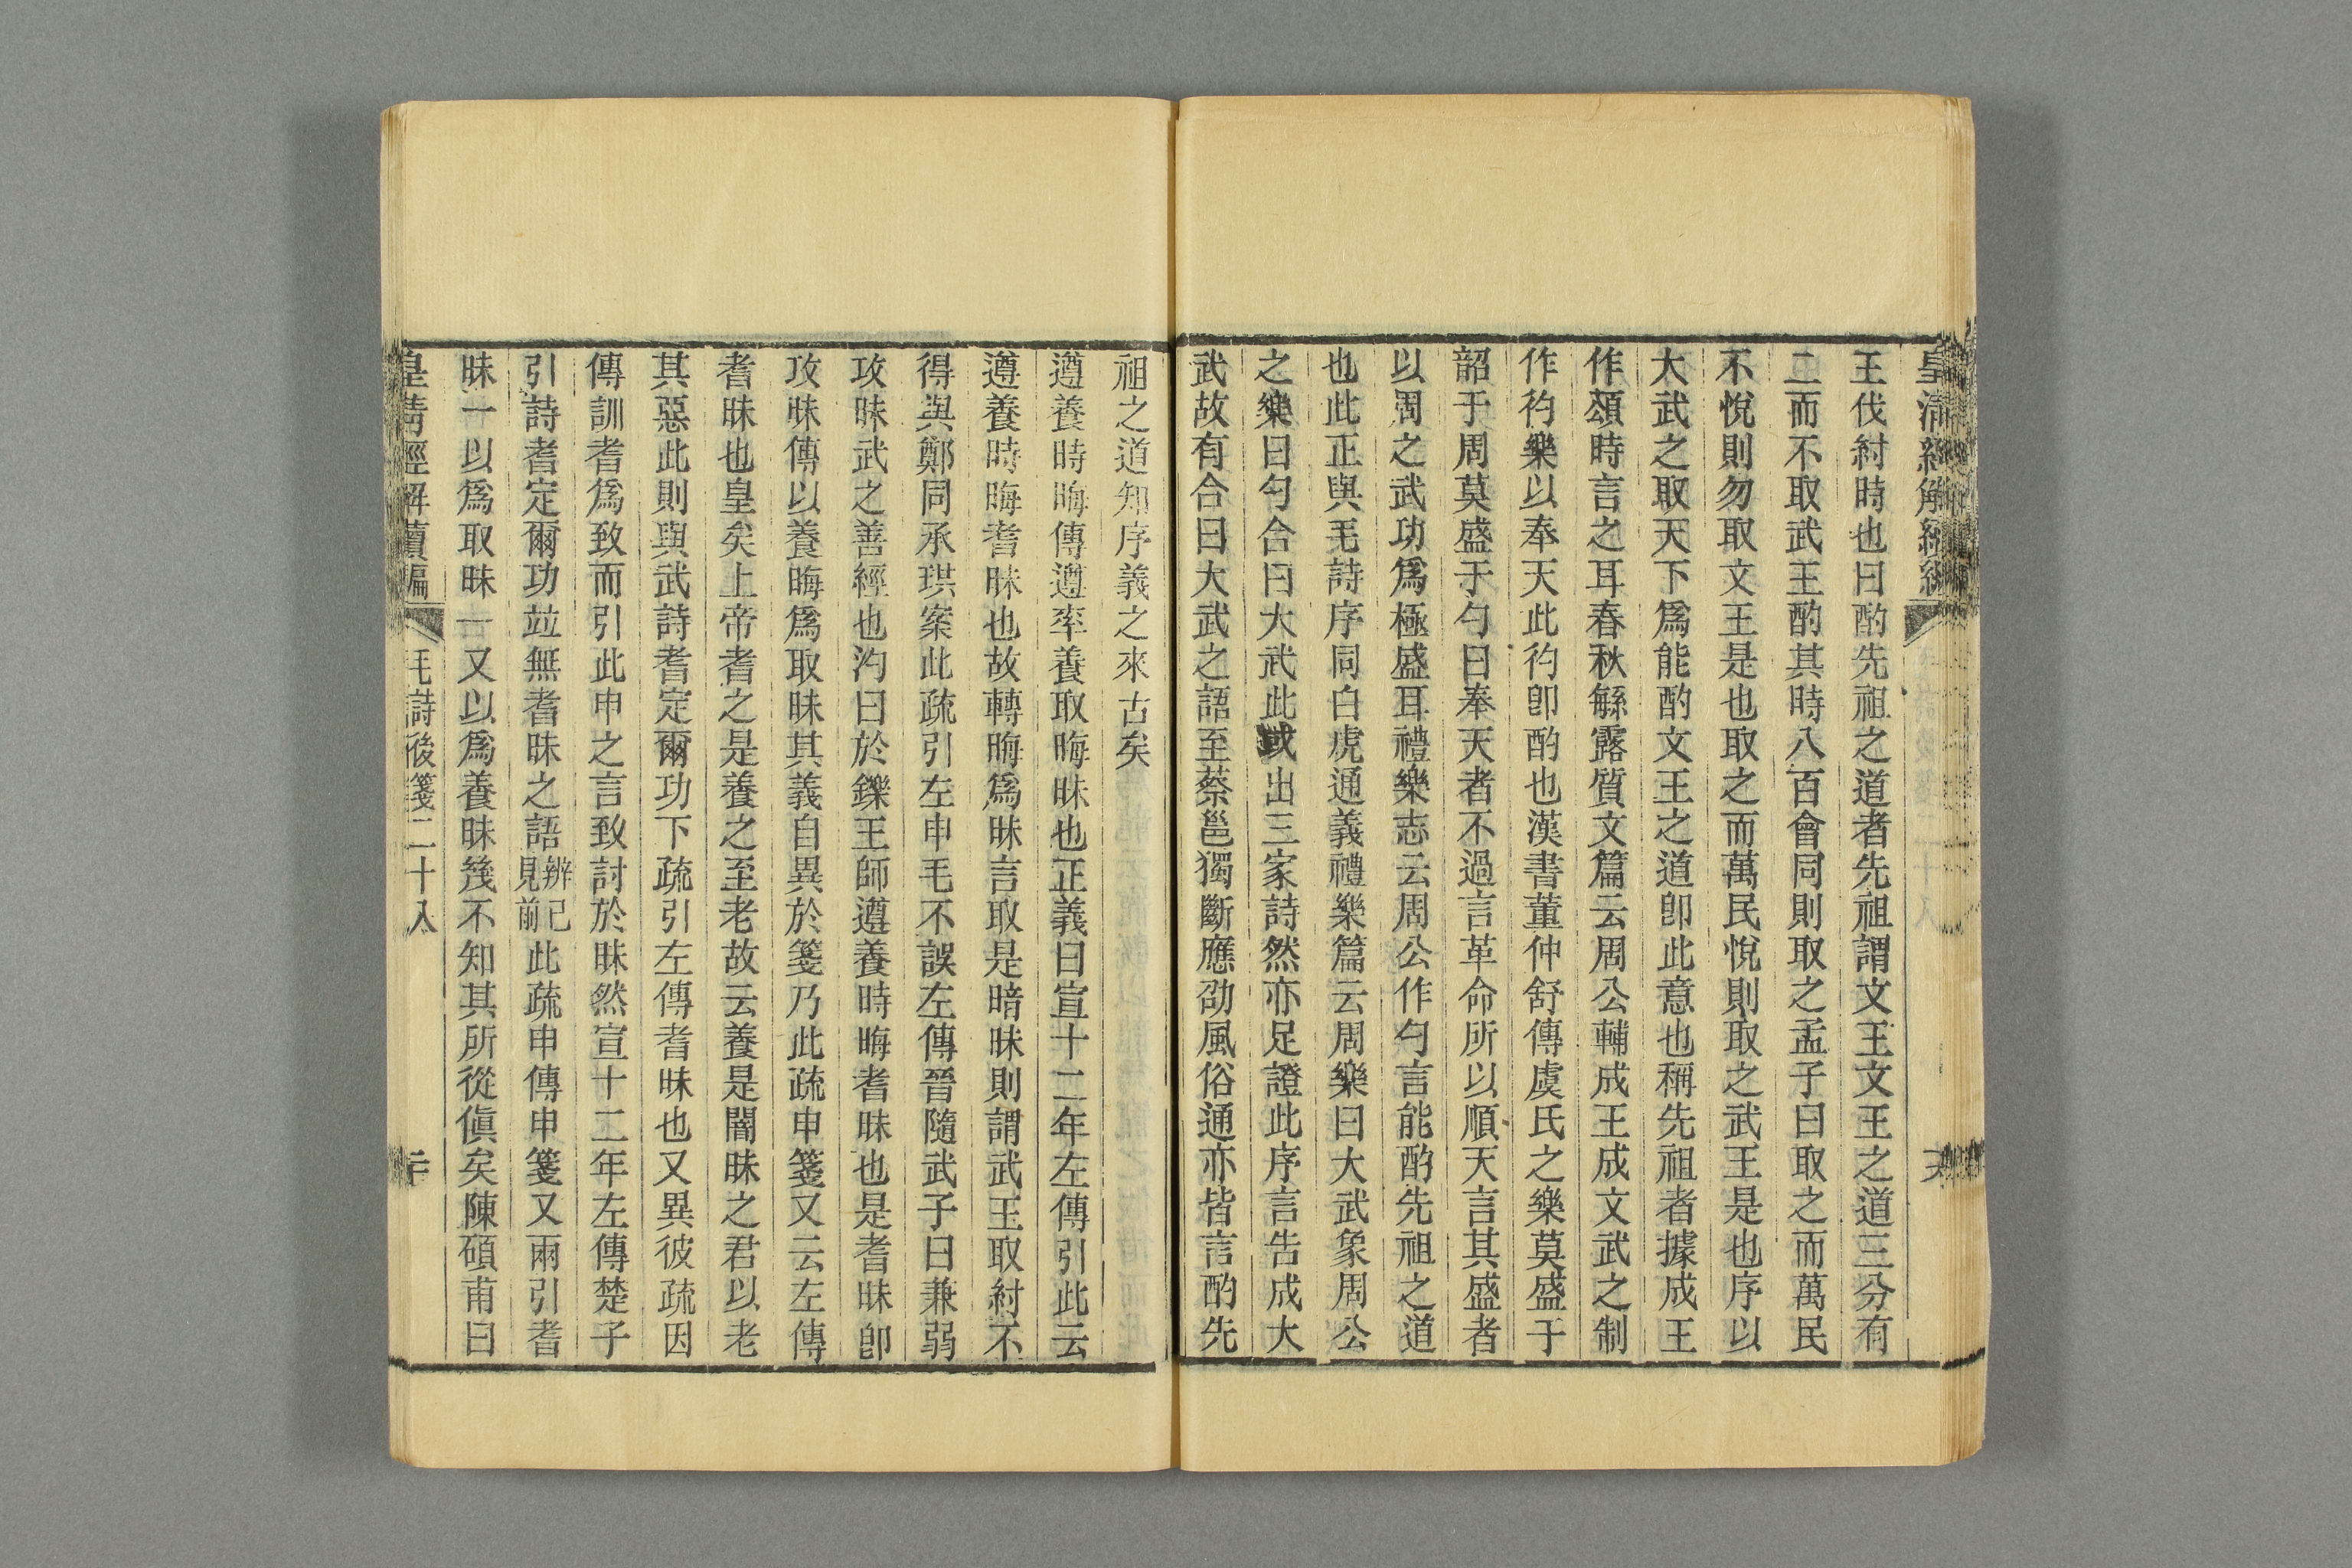 皇清經解續編
王伐紂時也曰酌先祖之道者先祖謂文王文王之道三分有
二而不取武王酌其時八百會同則取之孟子曰取之而萬民
不悅則勿取文王是也取之而萬民悅則取之武王是也序以
大武之取天下爲能酌文王之道卽此意也稱先祖者據成王
作頌時言之耳春秋緐露質文篇云周公輔成王成文武之制
作汋樂以奉天此汋卽酌也漢書董仲舒傳虞氏之樂莫盛于
韶于周莫盛于勺曰奉天者不過言革命所以順天言其盛者
以周之武功爲極盛耳禮樂志云周公作勺言能酌先祖之道
也此正與毛詩序同白虎通義禮樂篇云周樂曰大武象周公
之樂曰勺合曰大武此或出三家詩然亦足證此序言告成大
武故有合曰大武之語至蔡邕獨斷應劭風俗通亦皆言酌先
祖之道知序義之來古矣
遵養時晦傳遵率養取晦昧也正義曰宣十二年左傳引此云
遵養時晦耆昧也故轉晦爲昧言取是暗昧則謂武王取紂不
得與鄭同承珙案此疏引左申毛不誤左傳晉隨武子曰兼弱
攻昧武之善經也汋曰於鑠王師遵養時晦耆昧也是耆昧卽
攻昧傳以養晦爲取昧其義自異於箋乃此疏申箋又云左傳
耆昧也皇矣上帝耆之是養之至老故云養是闇昧之君以老
其惡此則與武詩耆定爾功下疏引左傳耆昧也又異彼疏因
傳訓耆爲致而引此申之言致討於昧然宣十二年左傳楚子
引詩耆定爾功竝無耆昧之語辨已見前此疏申傳申箋又兩引耆
昧一以爲取昧一又以爲養昧幾不知其所從傎矣陳碩甫曰
皇清經解續編 毛詩後箋二十八 二十